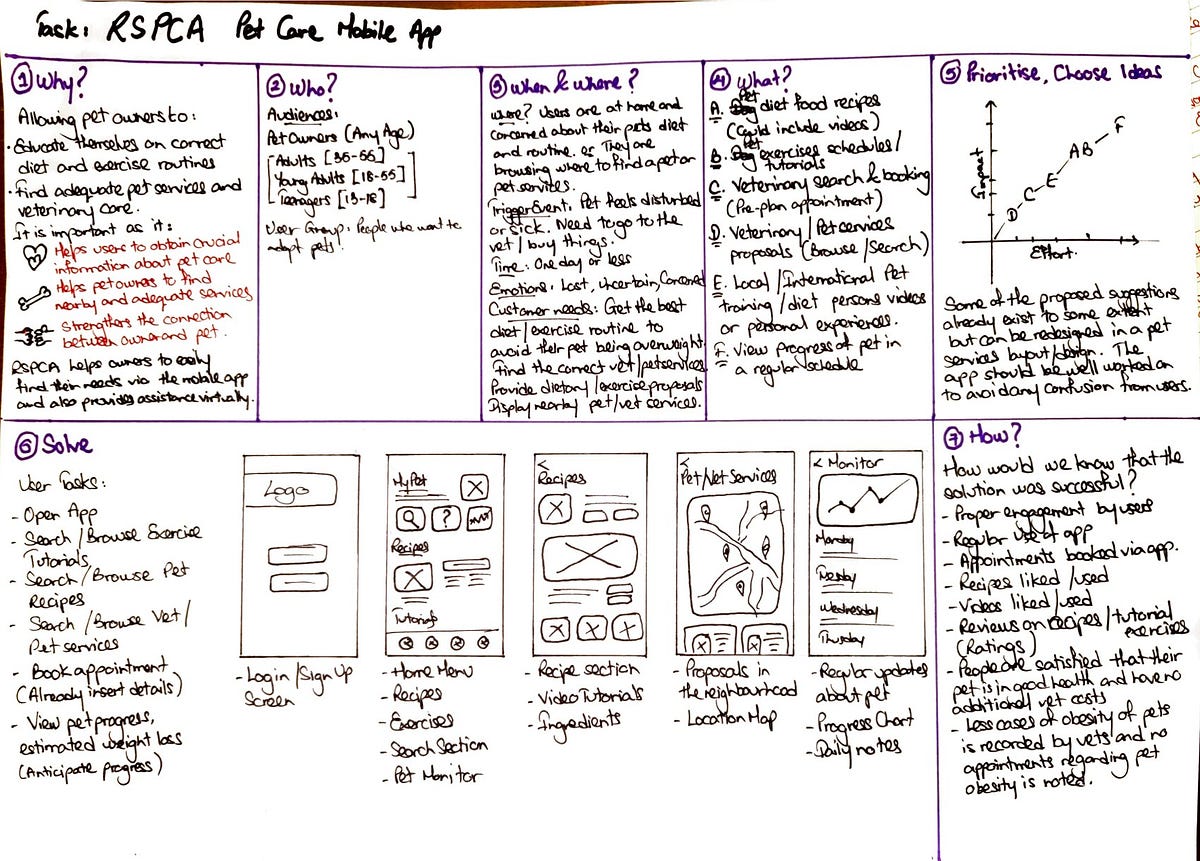 Task: RSPCA Pet Care Mobile App
① Why?
Allowing pet owners to:
• Educate themselves on correct
diet and exercise routines
• Find adequate pet services and
veterinary care.
It is important as it:
Helps users to obtain crucial
information about pet care
Helps pet owners to find
nearby and adequate services
Strengthens the connection
between owner and pet.
RSPCA helps owners to easily
find their needs via the mobile app
and also provides assistance virtually.
② Who?
Audiences:
Pet Owners (Any Age)
Adults [35-55]
Young Adults [18-55]
Teenagers [13-18]
User Group: People who want to
adopt pets!
③ When & Where?
Where? Users are at home and
concerned about their pets diet
and routine. or They are
browsing where to find a pet or
pet services.
Trigger Event: Pet feels disturbed
or sick. Need to go to the
vet / buy things.
Time: One day or less
Emotions: Lost, Uncertain, Concerned
Customer needs: Get the best
diet / exercise routine to
avoid their pet being overweight.
Find the correct vet / pet services
Provide dietary / exercise proposals
Display nearby pet / vet services.
④ What?
A. Pet diet food recipes
(could include videos)
B. Pet exercises schedules /
tutorials
C. Veterinary search & booking
(Pre-plan appointment)
D. Veterinary / Pet services
proposals (Browse / Search)
E. Local / International Pet
training / diet persons videos
or personal experiences.
F. View Progress of pet in
a regular schedule
⑤ Prioritise, Choose Ideas
Impact
F
A B
E
C
D
Effort.
Some of the proposed suggestions
already exist to some extent
but can be redesigned in a pet
services layout / design. The
app should be well worked on
to avoid any confusion from users.
⑥ Solve
User Tasks:
- Open App
- Search / Browse Exercise
Tutorials
- Search / Browse Pet
Recipes
- Search / Browse Vet /
Pet services
- Book appointment
(Already insert details)
- View pet progress,
estimated weight loss
(Anticipate progress)
Logo
- Login / Sign Up
Screen
My Pet
?
Recipes
Tutorials
- Home Menu
- Recipes
- Exercises
- Search Section
- Pet Monitor
<
Recipes
- Recipe section
- Video Tutorials
- Ingredients
<
Pet/Vet Services
- Proposals in
the neighbourhood
- Location Map
< Monitor
Monday
Tuesday
Wednesday
Thursday
- Regular updates
about pet
- Progress Chart
- Daily notes
⑦ How?
How would we know that the
solution was successful?
- Proper engagement by users
- Regular use of app
- Appointments booked via app.
- Recipes liked / used
- Videos liked / used
- Reviews on recipes / tutorial
exercises
(Ratings)
- People are satisfied that their
pet is in good health and have no
additional vet costs
- Less cases of obesity of pets
is recorded by vets and no
appointments regarding pet
obesity is noted.